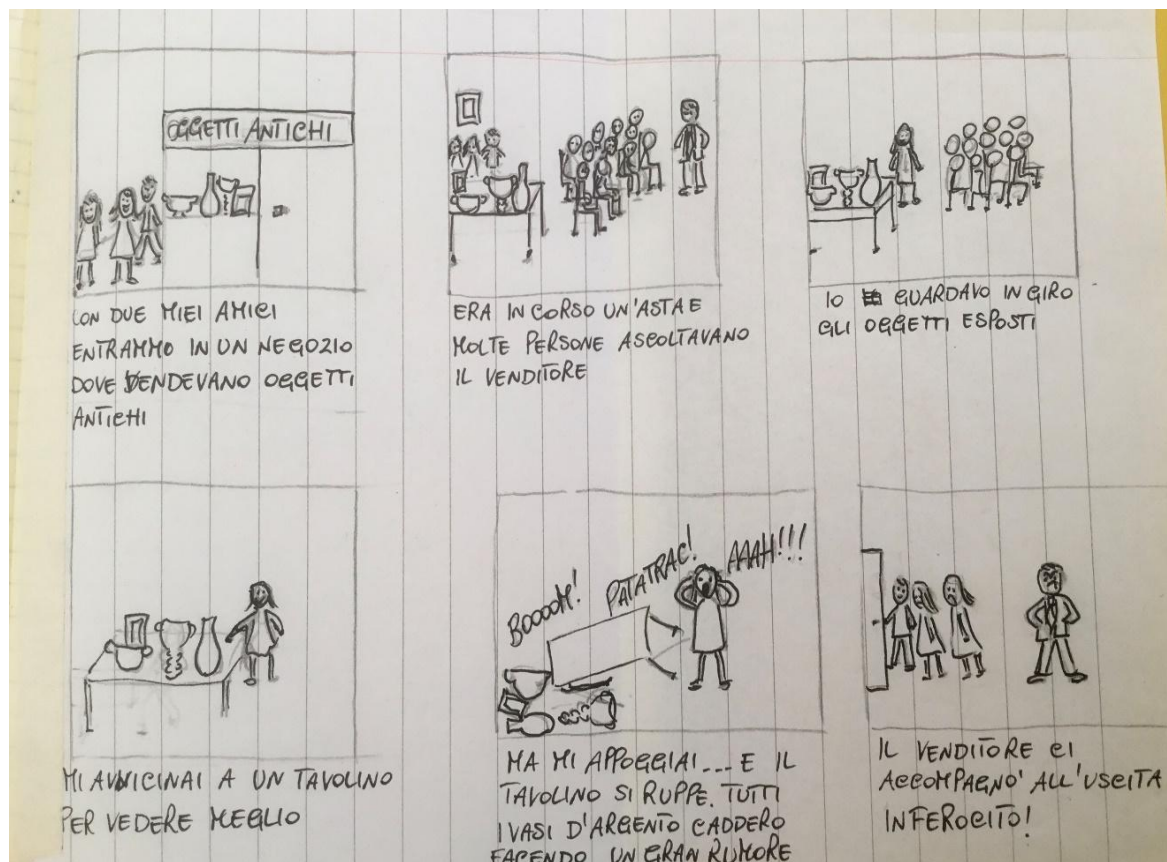 OGGETTI ANTICHI
CON DUE MIEI AMICI
ENTRAMMO IN UN NEGOZIO
DOVE VENDEVANO OGGETTI
ANTICHI
ERA IN CORSO UN'ASTA E
MOLTE PERSONE ASCOLTAVANO
IL VENDITORE
IO GUARDAVO IN GIRO
GLI OGGETTI ESPOSTI
MI AVVICINAI A UN TAVOLINO
PER VEDERE MEGLIO
BOOOOM!
PATATRAC!
AAAH!!!
MA MI APPOGGIAI... E IL
TAVOLINO SI RUPPE. TUTTI
I VASI D'ARGENTO CADDERO
FACENDO UN GRAN RUMORE
IL VENDITORE CI
ACCOMPAGNO' ALL'USCITA
INFEROCITO!